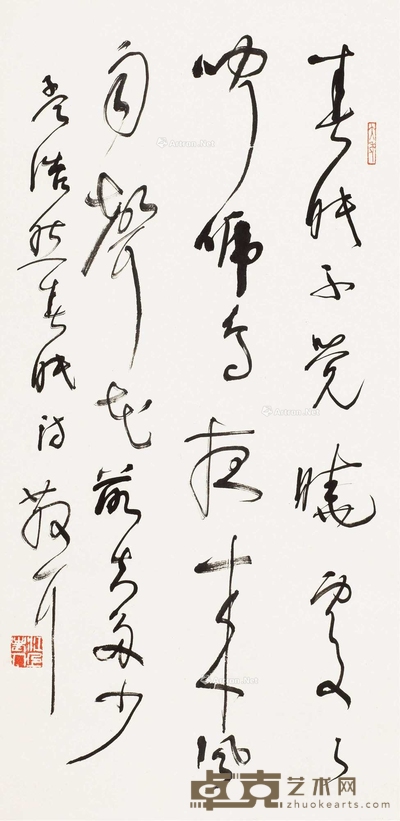 春眠不觉晓处处
闻啼鸟夜来风
雨声花落知多少
孟浩然春眠诗 散耳
卓克艺术网
zhuokearts.com